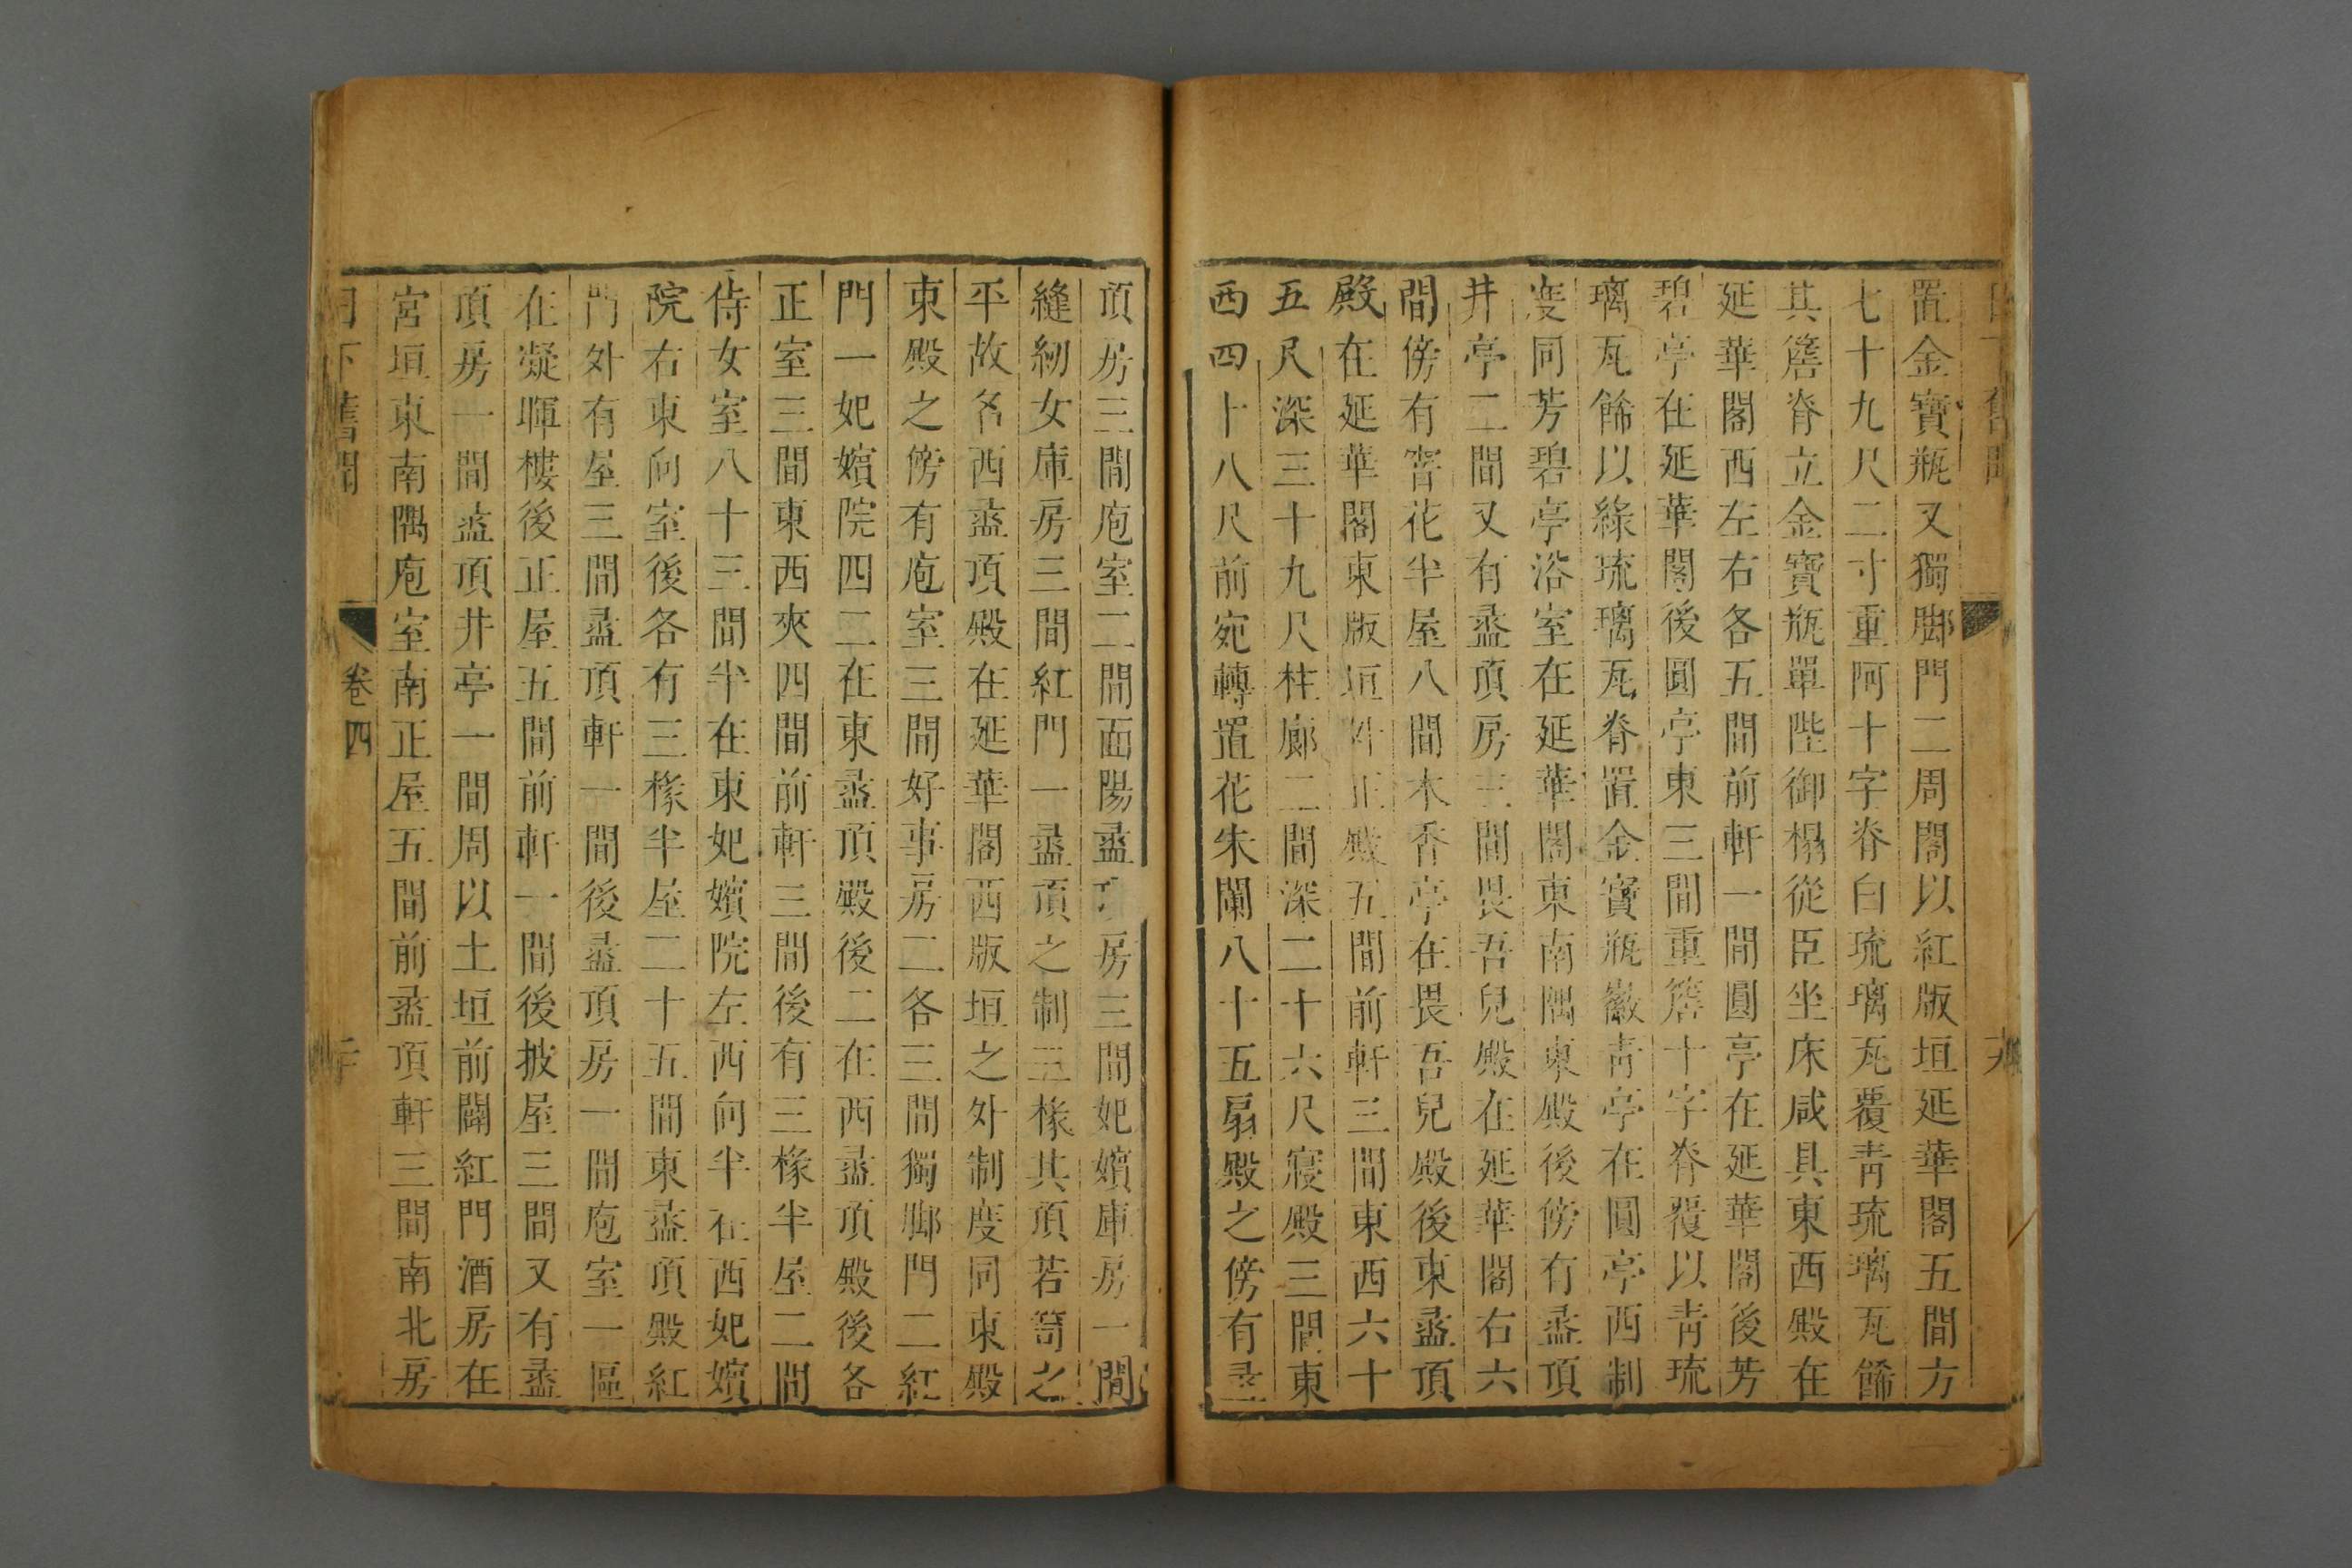 置金寶瓶又獨脚門二周閣以紅版垣延華閣五間方
七十九尺二寸重阿十字脊白琉璃瓦覆青琉璃瓦餙
其簷脊立金寶瓶單陛御榻從臣坐床咸具東西殿在
延華閣西左右各五間前軒一間圓亭在延華閣後芳
碧亭在延華閣後圓亭東三間重簷十字脊覆以青琉
璃瓦餙以綠琉璃瓦脊置金寶瓶徽青亭在圓亭西制
度同芳碧亭浴室在延華閣東南隅東殿後傍有盝頂
井亭二間又有盝頂房三間畏吾兒殿在延華閣右六
間傍有窨花半屋八間木香亭在畏吾兒殿後東盝頂
殿在延華閣東版垣外正殿五間前軒三間東西六十
五尺深三十九尺柱廊二間深二十六尺寢殿三間東
西四十八尺前宛轉置花朱闌八十五扇殿之傍有盝
頂房三間庖室二間面陽盝頂房三間妃嬪庫房一間
縫紉女庫房三間紅門一盝頂之制三椽其頂若笥之
平故名西盝頂殿在延華閣西版垣之外制度同東殿
東殿之傍有庖室三間好事房二各三間獨脚門二紅
門一妃嬪院四二在東盝頂殿後二在西盝頂殿後各
正室三間東西夾四間前軒三間後有三椽半屋二間
侍女室八十三間半在東妃嬪院左西向半在西妃嬪
院右東向室後各有三椽半屋二十五間東盝頂殿紅
門外有屋三間盝頂軒一間後盝頂房一間庖室一區
在凝暉樓後正屋五間前軒一間後披屋三間又有盝
頂房一間盝頂井亭一間周以土垣前闢紅門酒房在
宮垣東南隅庖室南正屋五間前盝頂軒三間南北房
日下舊聞 卷四